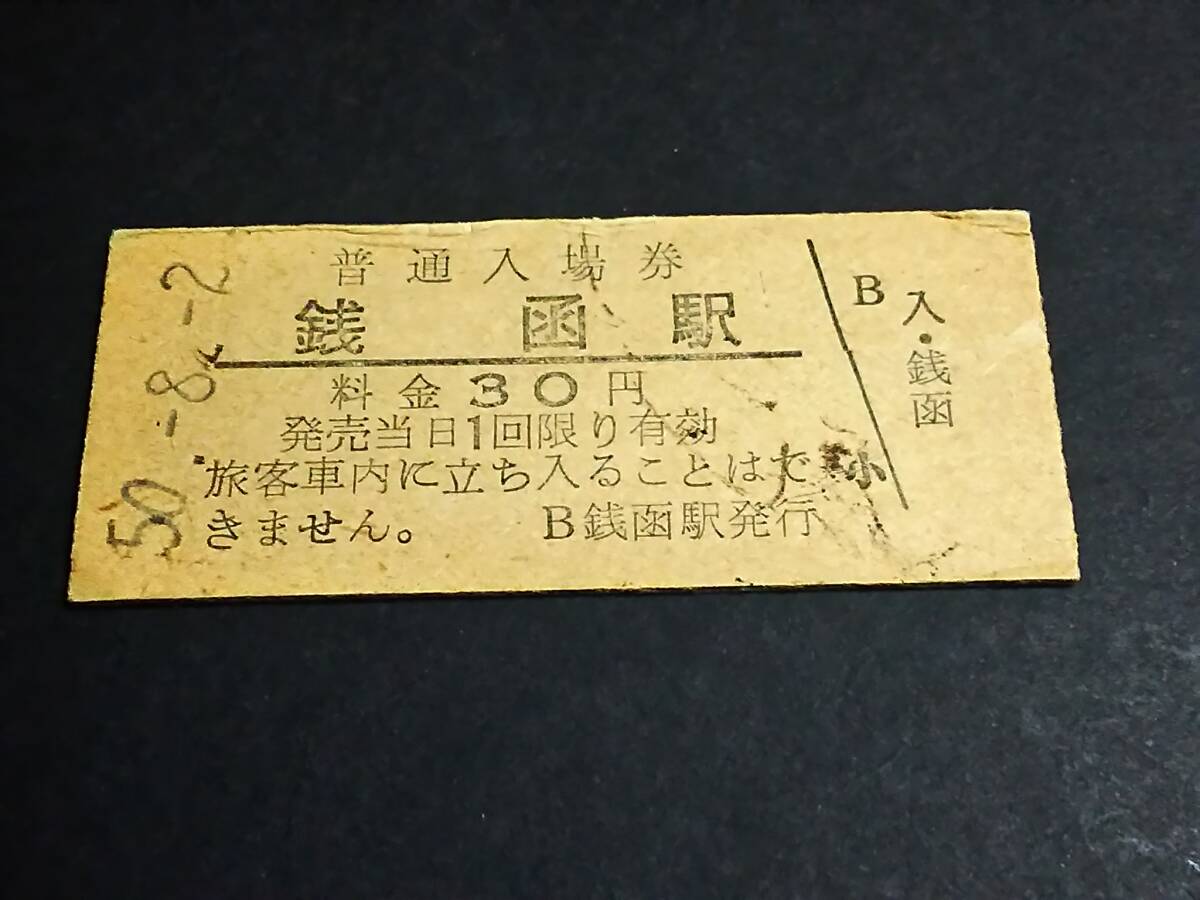 普通入場券
銭函駅
料金30円
発売当日1回限り有効
旅客車内に立ち入ることはで
きません。 B銭函駅発行
B
入・銭函
小
50.-8.-2